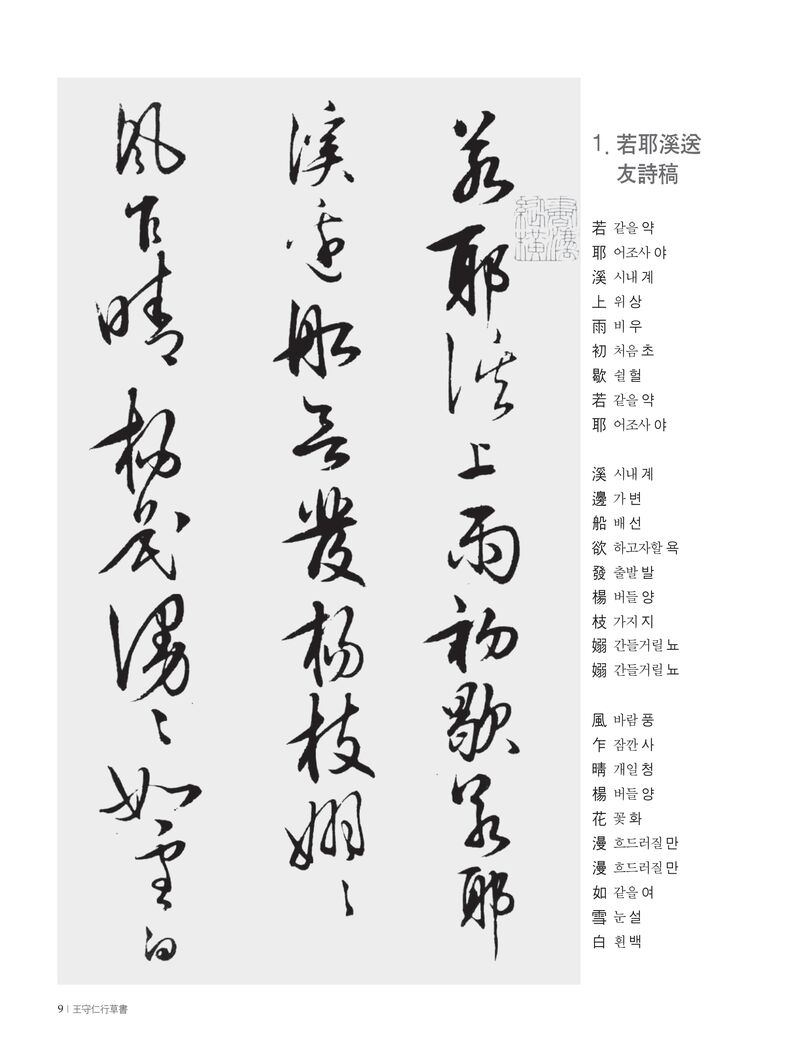 若耶溪上雨初歇若耶
溪邊船欲發楊枝嫋〻
風乍晴楊花漫〻如雪白
1. 若耶溪送
友詩稿
若 같을 약
耶 어조사 야
溪 시내 계
上 위 상
雨 비 우
初 처음 초
歇 쉴 헐
若 같을 약
耶 어조사 야
溪 시내 계
邊 가 변
船 배 선
欲 하고자할 욕
發 출발 발
楊 버들 양
枝 가지 지
嫋 간들거릴 뇨
嫋 간들거릴 뇨
風 바람 풍
乍 잠깐 사
晴 개일 청
楊 버들 양
花 꽃 화
漫 흐드러질 만
漫 흐드러질 만
如 같을 여
雪 눈 설
白 흰 백
9 | 王守仁行草書